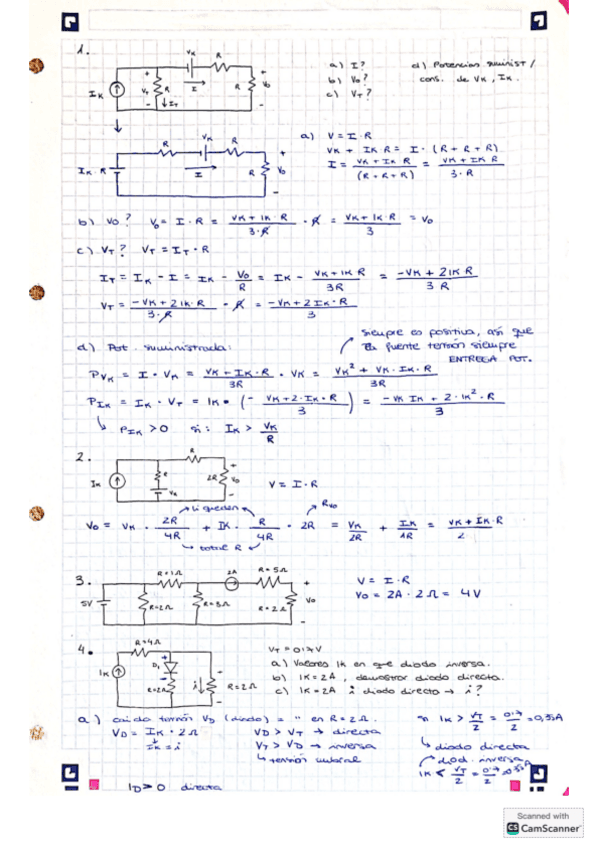 1.
Vk R
Ik VT R IT I R Vo
a) I?
b) Vo?
c) VT?
d) Potencias suminist/
cons. de Vk, Ik.
R Vk R
Ik·R I R Vo
a) V = I·R
Vk + Ik R = I·(R+R+R)
I = Vk + Ik R / (R+R+R) = Vk + Ik R / 3·R
b) Vo? Vo = I·R = Vk + Ik·R / 3·R · R = Vk + Ik·R / 3 = Vo
c) VT? VT = IT·R
IT = Ik - I = Ik - Vo/R = Ik - Vk + Ik R / 3R = -Vk + 2Ik R / 3R
VT = -Vk + 2Ik·R / 3·R · R = -Vk + 2Ik·R / 3
siempre es positiva, así que
la fuente tensión siempre
ENTREGA POT.
d) Pot. suministrada:
PVk = I·Vk = Vk + Ik·R / 3R · Vk = Vk² + Vk·Ik·R / 3R
PIk = Ik·VT = Ik·(- Vk + 2·Ik·R / 3) = -Vk Ik + 2·Ik²·R / 3
PIk > 0 si: Ik > Vk/R
2.
R
Ik R Vk 2R Vo
V = I·R
Rvo
Vo = Vk · 2R/4R + Ik · R/4R · 2R = Vk/2R + Ik/2R = Vk + Ik·R / 2
total R
3.
R=1Ω 2A R=5Ω
5V R=2Ω R=3Ω R=2Ω Vo
V = I·R
Vo = 2A · 2Ω = 4V
4.
R=4Ω
Ik D1 R=2Ω i R=2Ω
VT = 0'7V
a) Valores Ik en que diodo inversa.
b) Ik = 2A, demostrar diodo directa.
c) Ik = 2A i diodo directo → i?
a) caida tensión VD (diodo) = " en R = 2Ω.
VD = Ik · 2Ω
Ik = i
VD > VT → directa
VT > VD → inversa
tensión umbral
si Ik > VT/2 = 0'7/2 = 0,35A
diodo directa
diod. inversa
Ik < VT/2 = 0'7/2 = 0'35A
ID > 0 directa
Scanned with
CS CamScanner